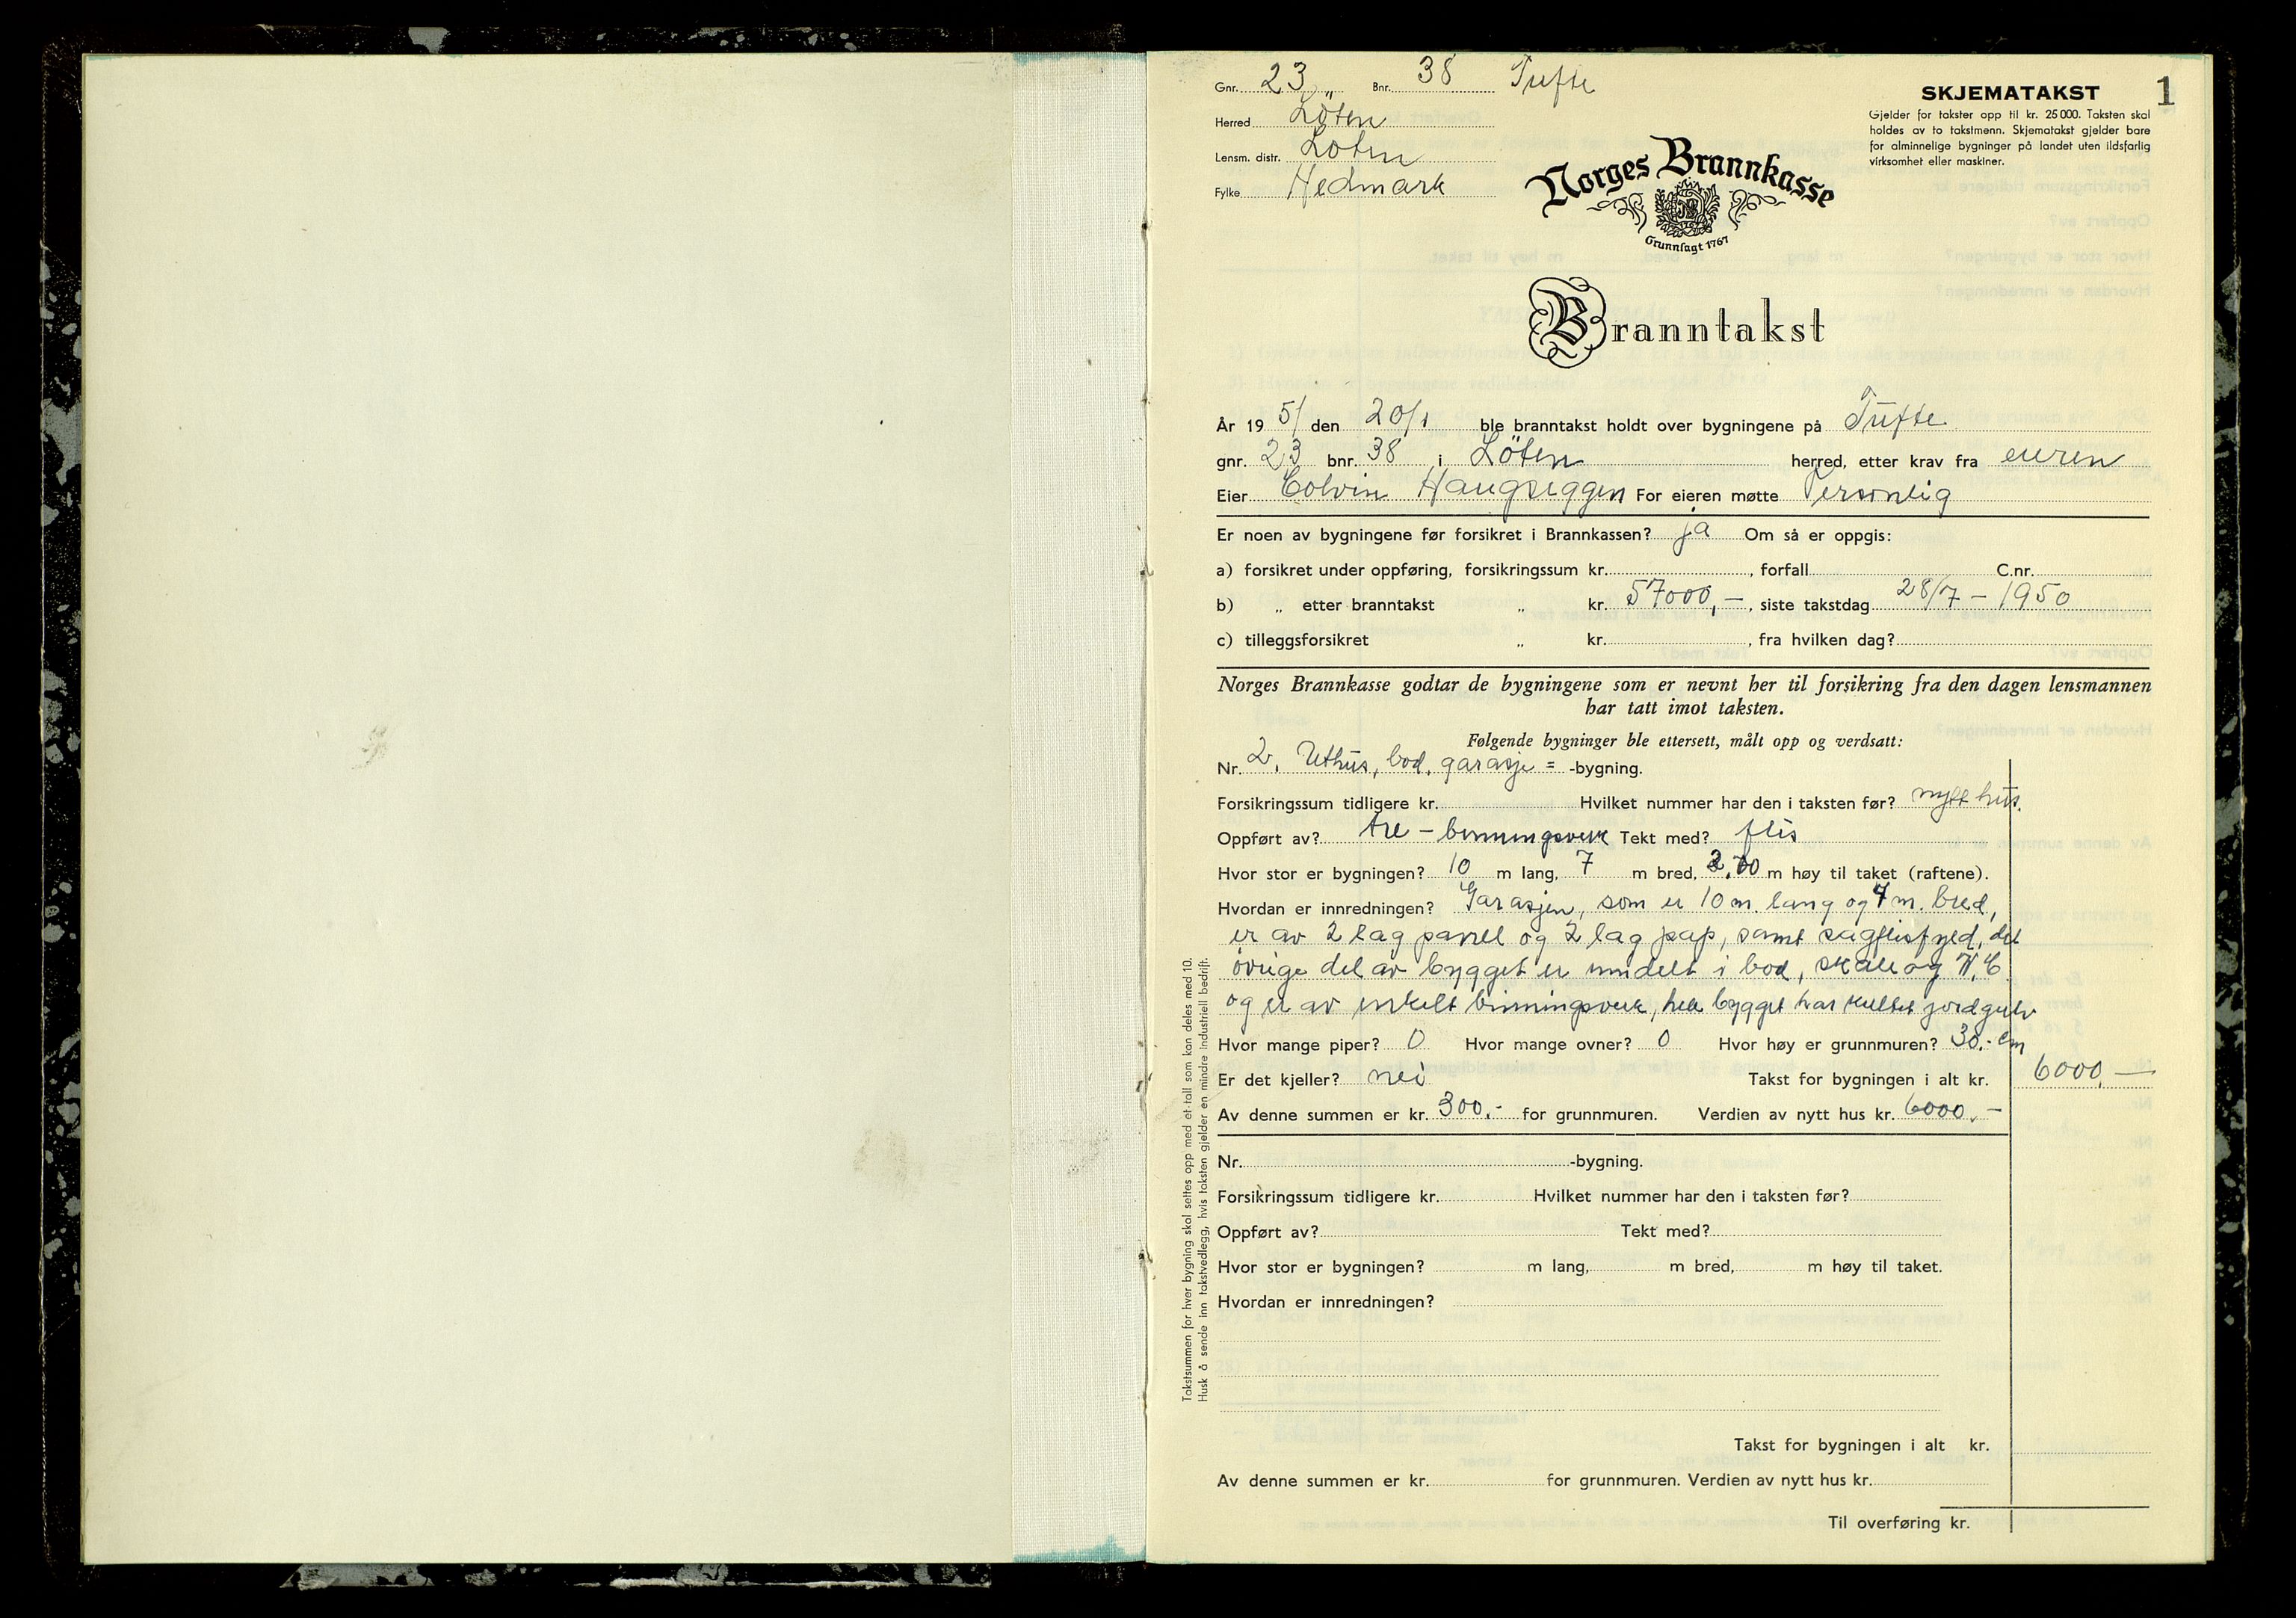 Gnr. 23 Bnr. 38 Tufte
Herred Löten
Lensm. distr. Löten
Fylke Hedmark
SKJEMATAKST 1
Gjelder for takster opp til kr. 25 000. Taksten skal
holdes av to takstmenn. Skjematakst gjelder bare
for alminnelige bygninger på landet uten ildsfarlig
virksomhet eller maskiner.
Norges Brannkasse
Grunnlagt 1767
Branntakst
År 19 51 den 20/1 ble branntakst holdt over bygningene på Tufte
gnr. 23 bnr. 38 i Löten herred, etter krav fra eieren
Eier Colvin Haugseggen For eieren møtte Personlig
Er noen av bygningene før forsikret i Brannkassen? ja Om så er oppgis:
a) forsikret under oppføring, forsikringssum kr. , forfall C.nr.
b) „ etter branntakst „ kr. 57000,— , siste takstdag 28/7 – 1950
c) tilleggsforsikret „ kr. , fra hvilken dag?
Norges Brannkasse godtar de bygningene som er nevnt her til forsikring fra den dagen lensmannen
har tatt imot taksten.
Følgende bygninger ble ettersett, målt opp og verdsatt:
Nr. 2. Uthus, bod, garasje = -bygning.
Forsikringssum tidligere kr. Hvilket nummer har den i taksten før? nytt hus.
Oppført av? tre – binningsverk Tekt med? flis
Hvor stor er bygningen? 10 m lang, 7 m bred, m høy til taket (raftene).
Hvordan er innredningen? Garasjen, som er 10 m. lang og 4 m. bred,
er av 2 lag panel og 2 lag pap, samt sagflisfyld, det
övrige del av bygget er inndelt i bod, skåle og W.C.
og er av enkelt binningsverk, hele bygget har kultet jordgulv
Hvor mange piper? 0 Hvor mange ovner? 0 Hvor høy er grunnmuren? 30.- cm
Er det kjeller? nei Takst for bygningen i alt kr. 6000,—
Av denne summen er kr. 300.- for grunnmuren. Verdien av nytt hus kr. 6000,—
Nr. -bygning.
Forsikringssum tidligere kr. Hvilket nummer har den i taksten før?
Oppført av? Tekt med?
Hvor stor er bygningen? m lang, m bred, m høy til taket.
Hvordan er innredningen?
Takst for bygningen i alt kr.
Av denne summen er kr. for grunnmuren. Verdien av nytt hus kr.
Til overføring kr.
Takstsummen for hver bygning skal settes opp med et tall som kan deles med 10.
Husk å sende inn takstvedlegg, hvis taksten gjelder en mindre industriell bedrift.